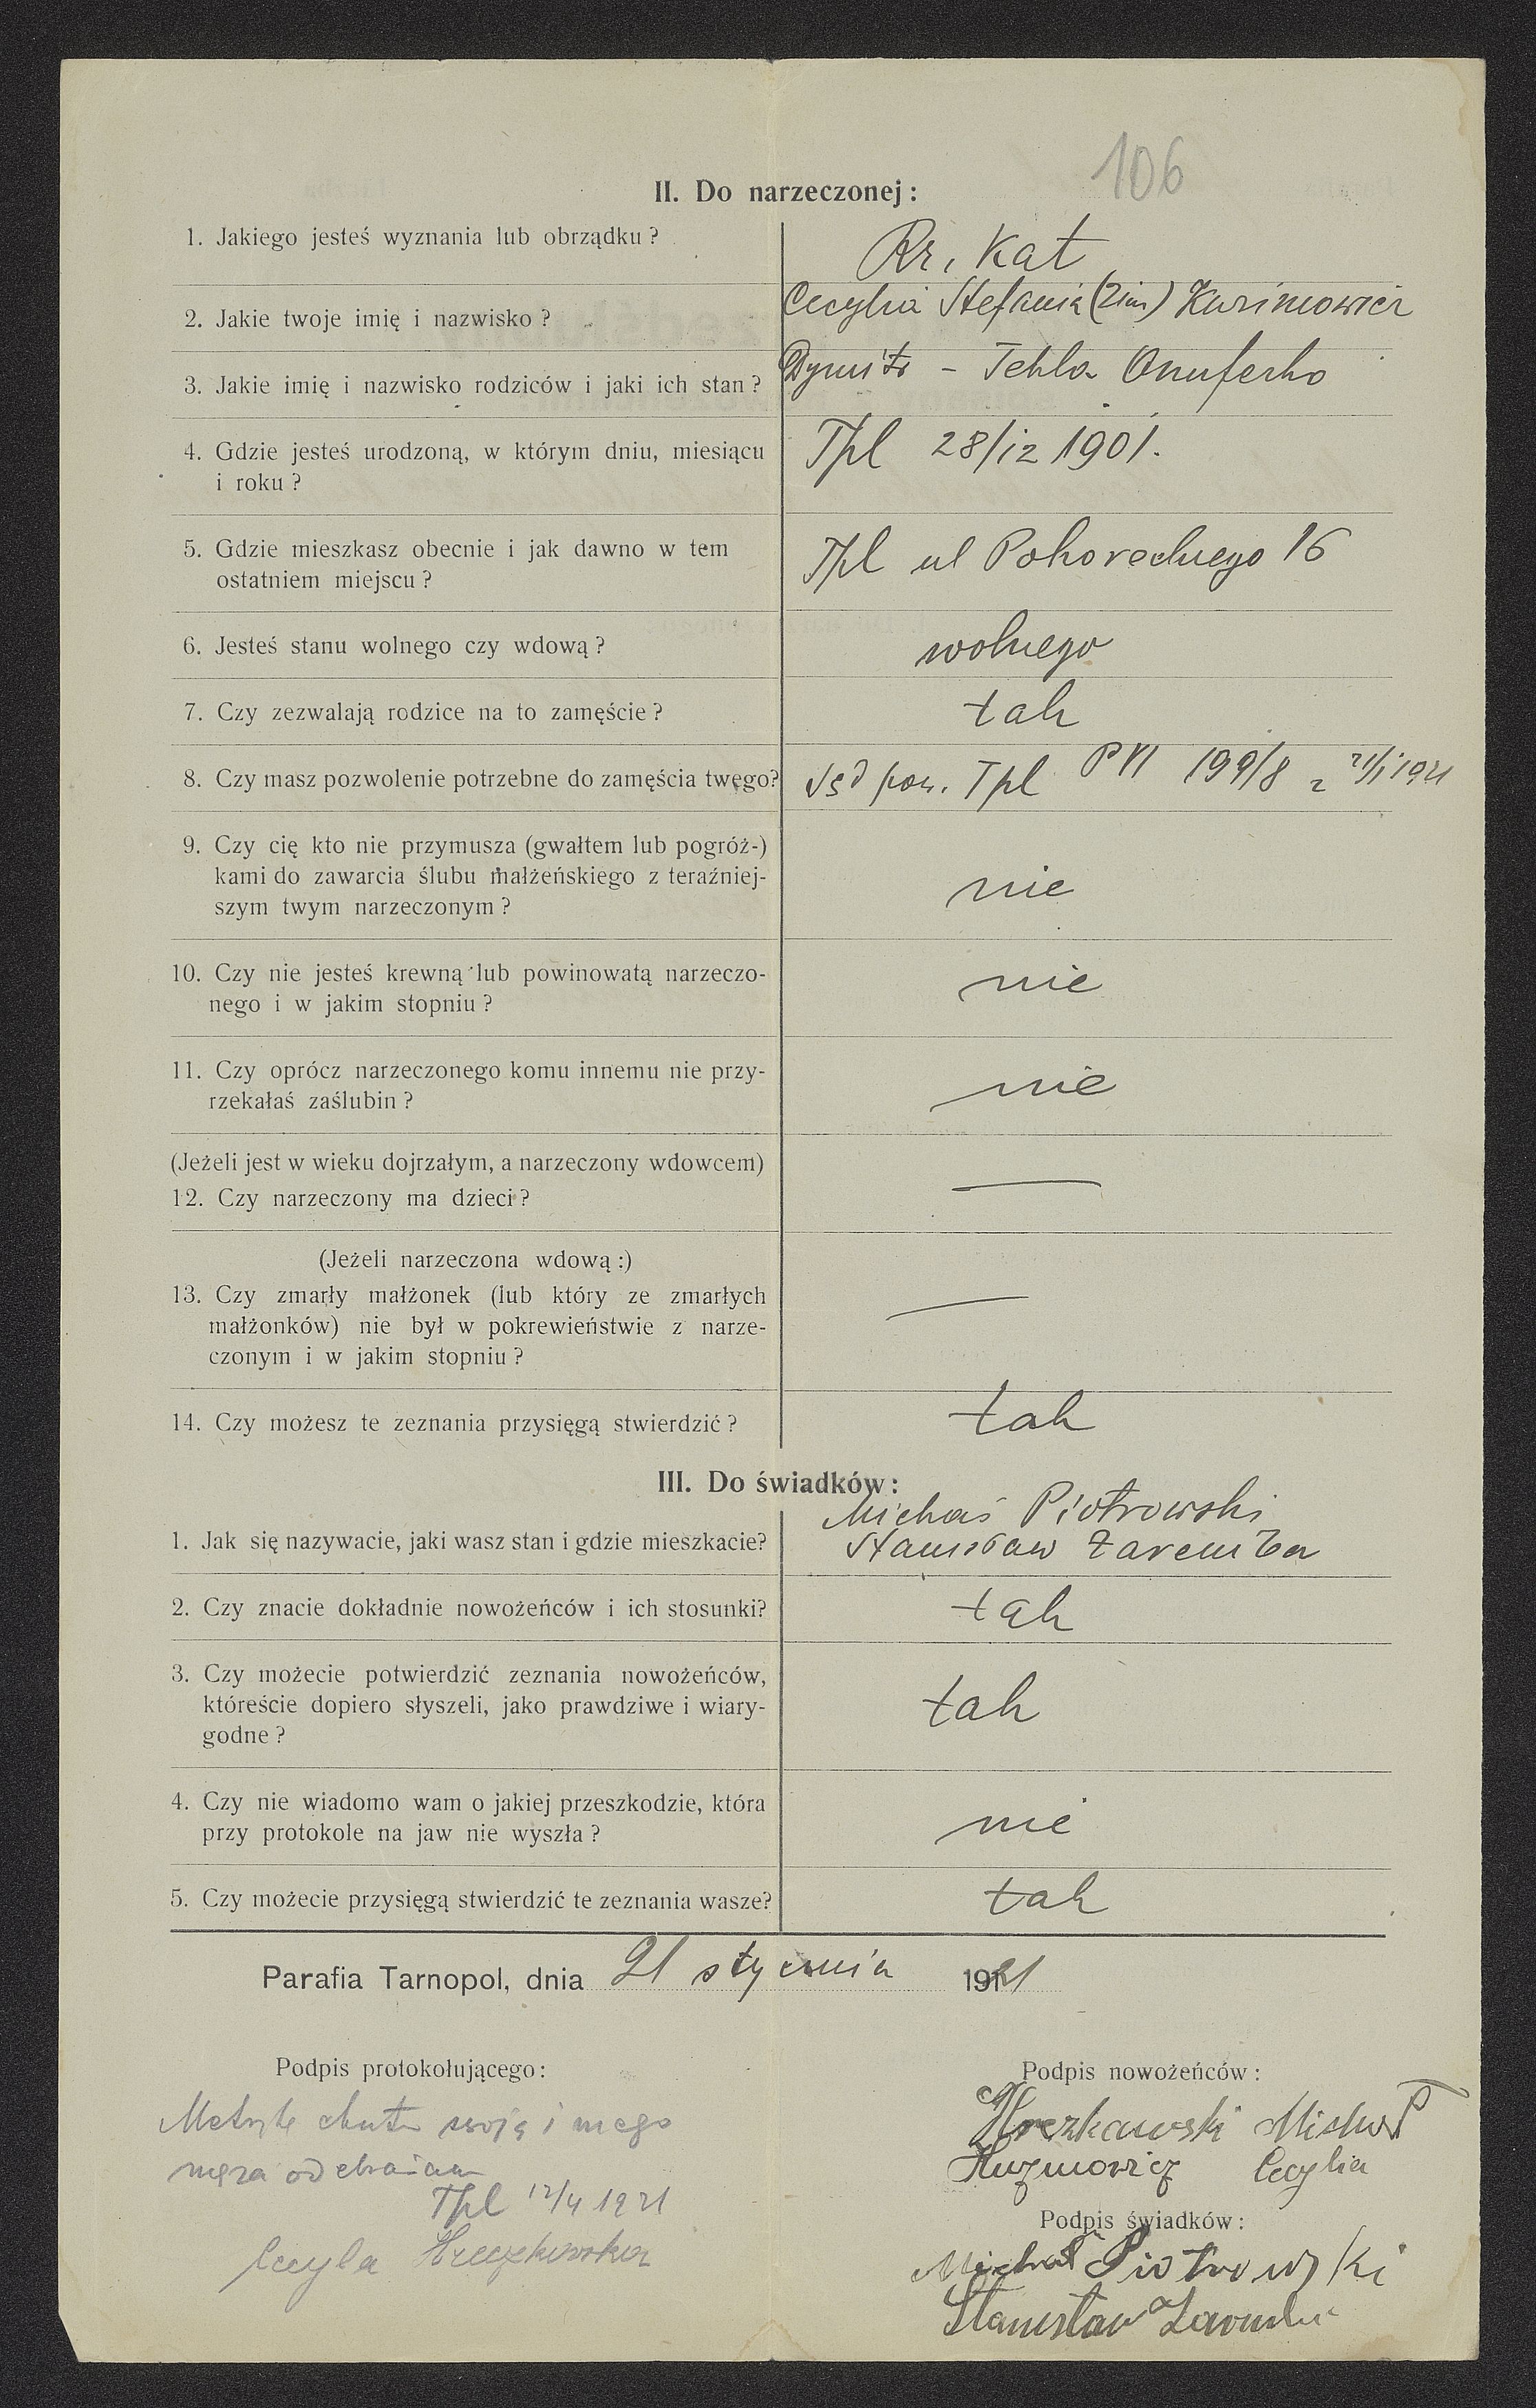 106
II. Do narzeczonej:
1. Jakiego jesteś wyznania lub obrządku?
Rz, Kat
2. Jakie twoje imię i nazwisko?
Cecylia Stefania (2im) Kuzimowicz
3. Jakie imię i nazwisko rodziców i jaki ich stan?
Dymitr - Tekla Onuferko
4. Gdzie jesteś urodzoną, w którym dniu, miesiącu
i roku?
Tpl 28/12 1901.
5. Gdzie mieszkasz obecnie i jak dawno w tem
ostatniem miejscu?
Tpl ul 16
6. Jesteś stanu wolnego czy wdową?
wolnego
7. Czy zezwalają rodzice na to zamęście?
tak
8. Czy masz pozwolenie potrzebne do zamęścia twego?
Sąd pow. Tpl P VI 199/8 z 21/1 1921
9. Czy cię kto nie przymusza (gwałtem lub pogróż-)
kami do zawarcia ślubu małżeńskiego z teraźniej-
szym twym narzeczonym?
nie
10. Czy nie jesteś krewną lub powinowatą narzeczo-
nego i w jakim stopniu?
nie
11. Czy oprócz narzeczonego komu innemu nie przy-
rzekałaś zaślubin?
nie
(Jeżeli jest w wieku dojrzałym, a narzeczony wdowcem)
12. Czy narzeczony ma dzieci?
—
(Jeżeli narzeczona wdową:)
13. Czy zmarły małżonek (lub który ze zmarłych
małżonków) nie był w pokrewieństwie z narze-
czonym i w jakim stopniu?
—
14. Czy możesz te zeznania przysięgą stwierdzić?
tak
III. Do świadków:
Michał Piotrowski
1. Jak się nazywacie, jaki wasz stan i gdzie mieszkacie?
Stanisław Zaremba
2. Czy znacie dokładnie nowożeńców i ich stosunki?
tak
3. Czy możecie potwierdzić zeznania nowożeńców,
któreście dopiero słyszeli, jako prawdziwe i wiary-
godne?
tak
4. Czy nie wiadomo wam o jakiej przeszkodzie, która
przy protokole na jaw nie wyszła?
nie
5. Czy możecie przysięgą stwierdzić te zeznania wasze?
tak
Parafia Tarnopol, dnia 21 stycznia 1921
Podpis protokołującego:
Metrykę chrztu swoją i mego
męża odebrałam
Tpl 12/4 1921
Cecyla Hreczkowska
Podpis nowożeńców:
Hreczkowski Michał
Kuzmowicz Cecylia
Podpis świadków:
Michał Piotrowski
Stanisław Zaremba